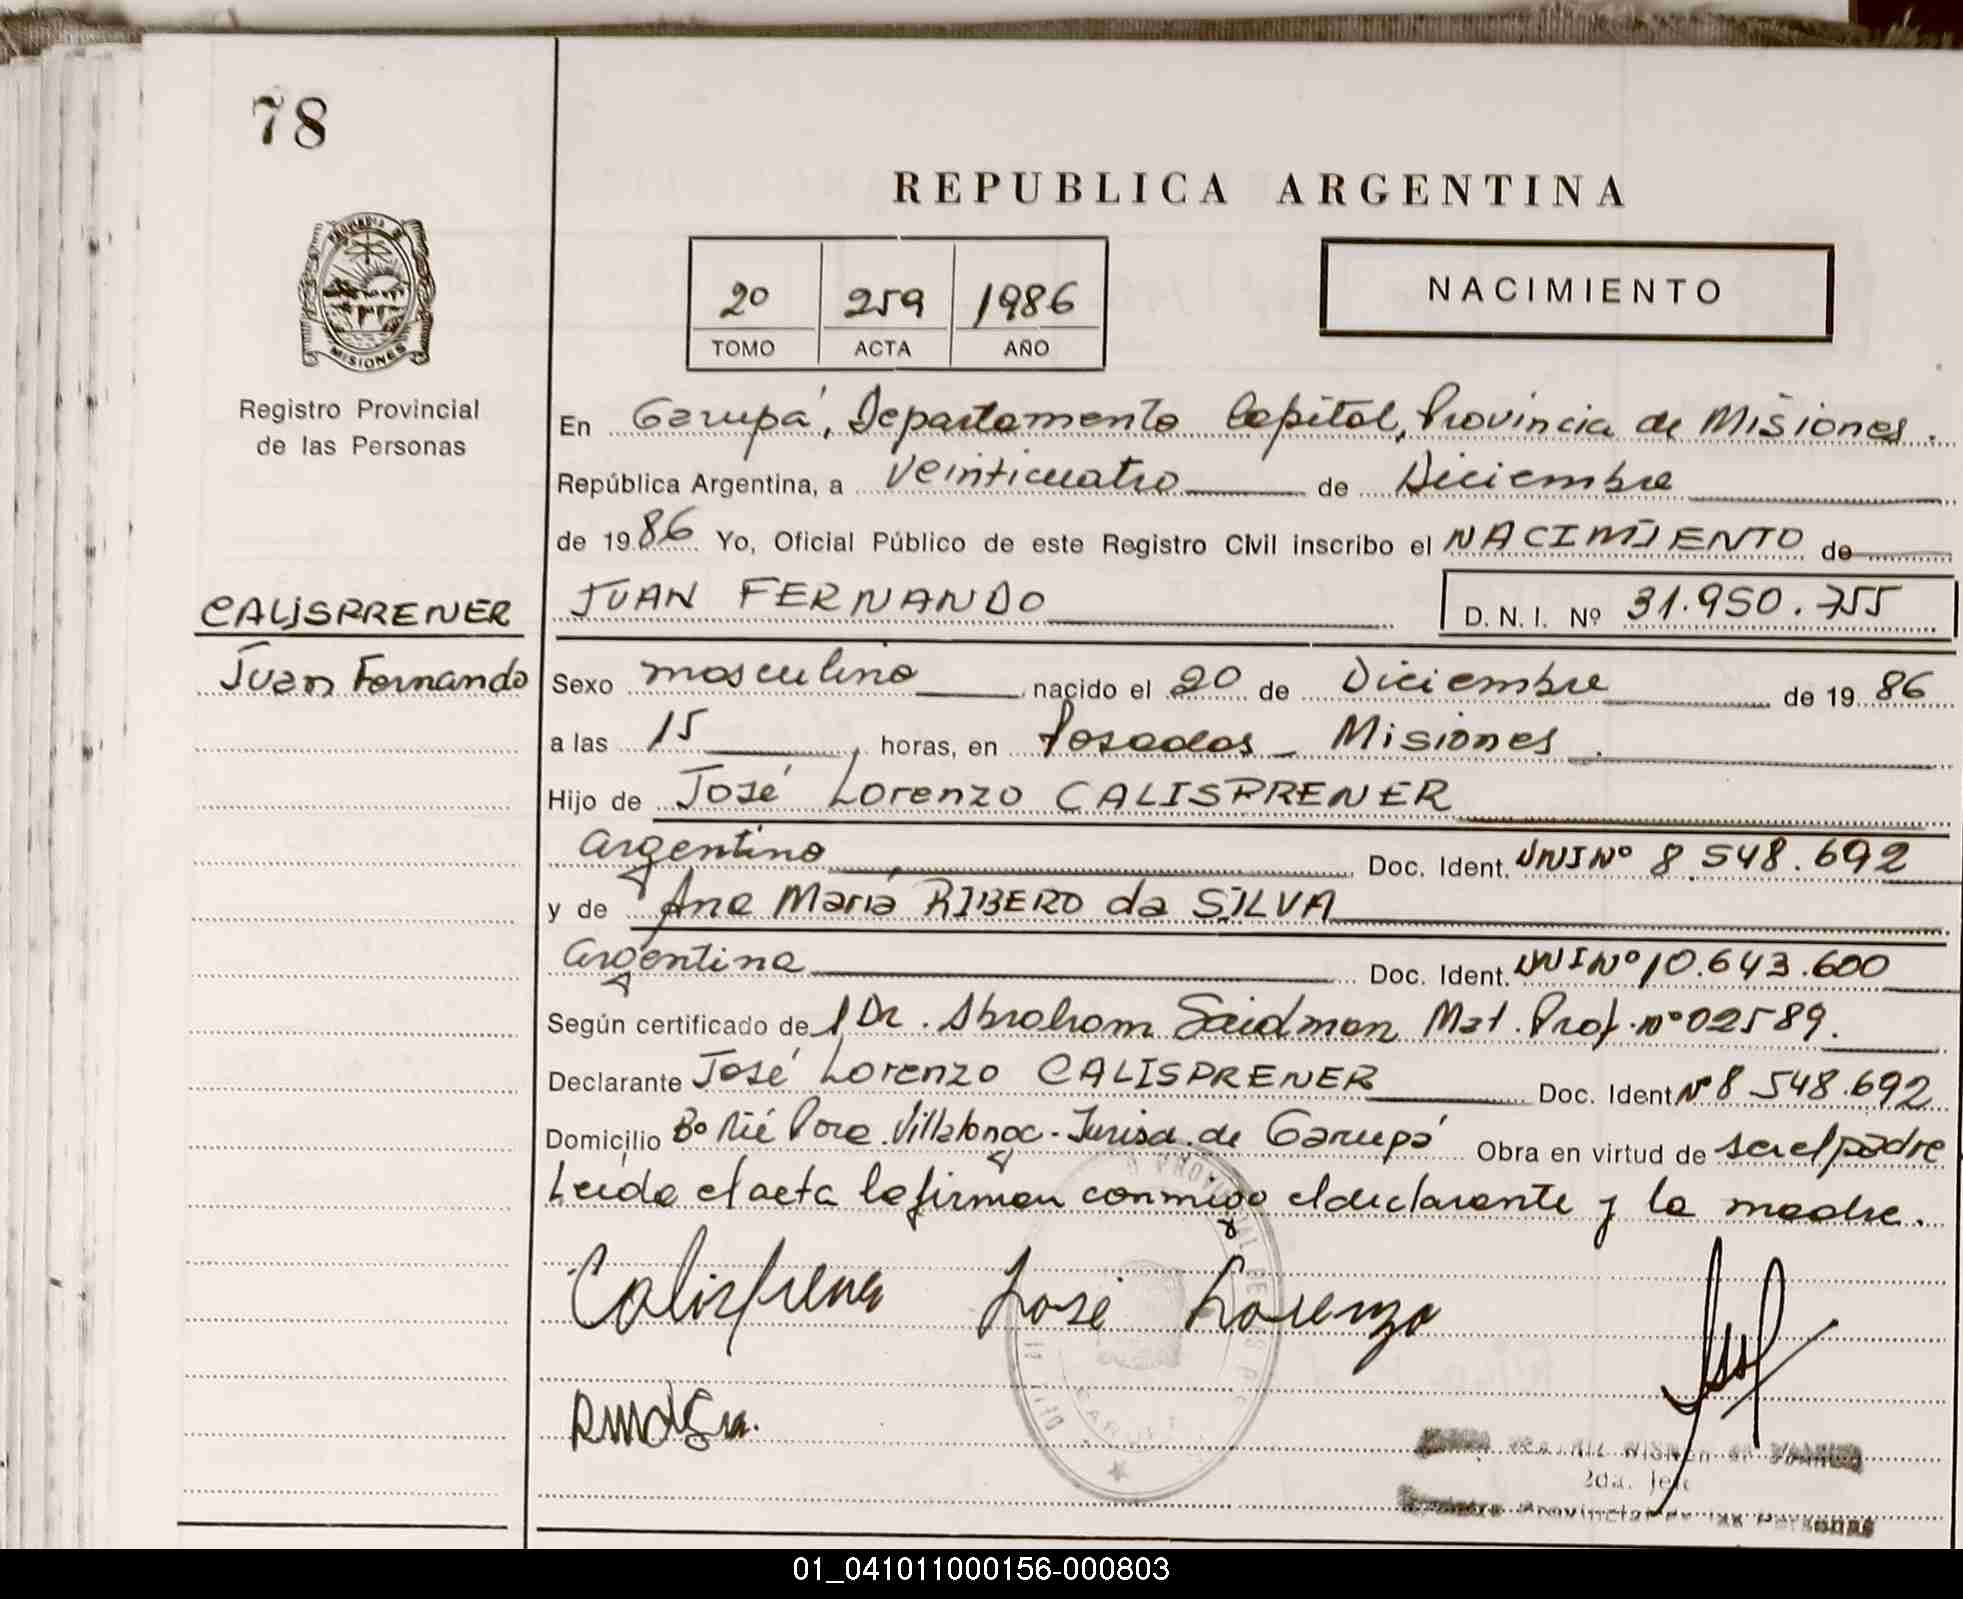 78
REPUBLICA ARGENTINA
PROVINCIA DE
MISIONES
Registro Provincial
de las Personas
2º 259 1986
TOMO ACTA AÑO
NACIMIENTO
En Garupá, Departamento Capital, Provincia de Misiones.
República Argentina, a veinticuatro de Diciembre
de 1986 Yo, Oficial Público de este Registro Civil inscribo el NACIMIENTO de
CALISPRENER
Juan Fernando
JUAN FERNANDO D. N. I. Nº 31.950.755
Sexo masculino nacido el 20 de Diciembre de 1986
a las 15 horas, en Posadas - Misiones.
Hijo de José Lorenzo CALISPRENER
argentino Doc. Ident. DNI Nº 8.548.692
y de Ana María RIBERO da SILVA
argentina Doc. Ident. DNI Nº 10.643.600
Según certificado del Dr. Abraham Saidman Mat. Prof. nº 02589.
Declarante José Lorenzo CALISPRENER Doc. Ident Nº 8 548.692
Domicilio Bº Ñu Pora. Villalonga - Jurisd. de Garupá Obra en virtud de ser el padre
Leída el acta la firman conmigo el declarante y la madre.
Calisprener José Lorenzo
2da. Jefe
Registro Provincial de las Personas
01_041011000156-000803